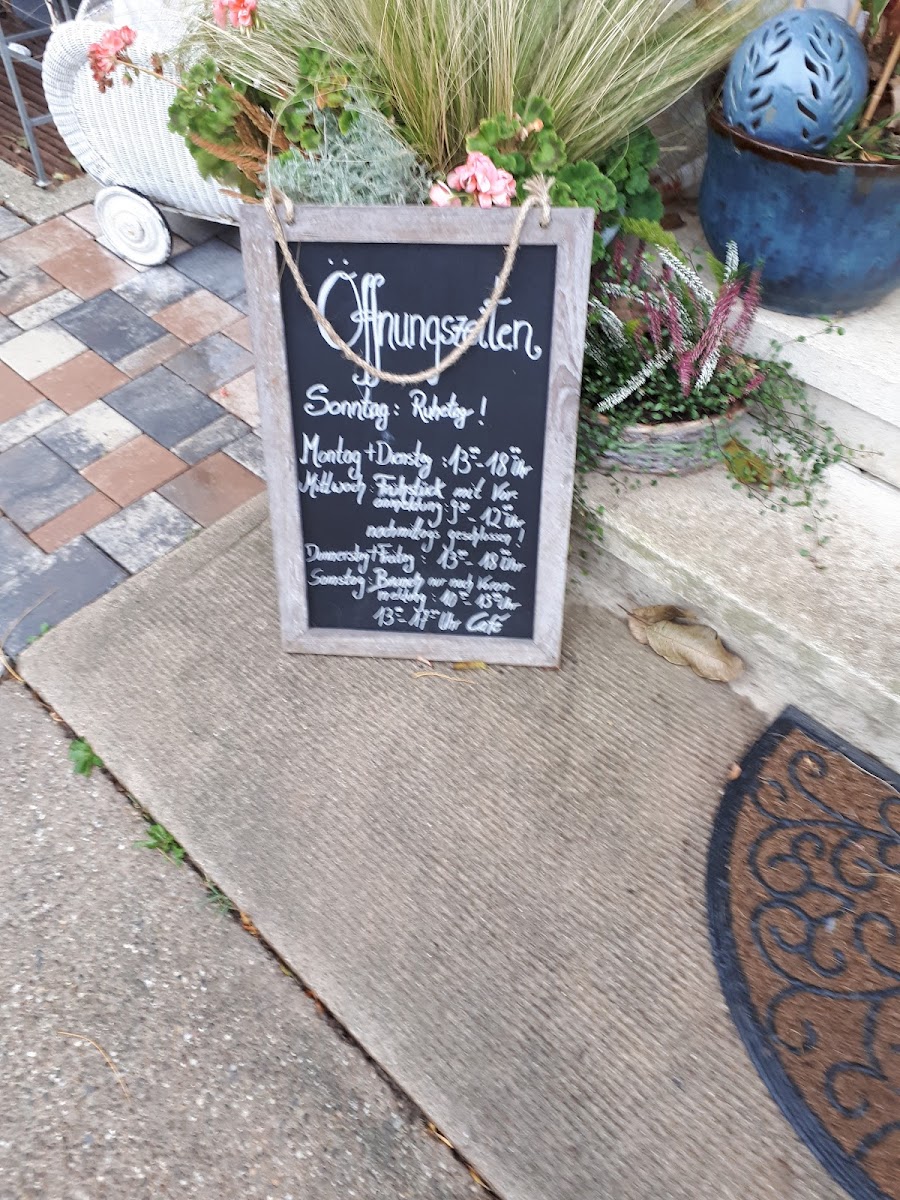 Öffnungszeiten
Sonntag: Ruhetag!
Montag + Dienstag: 13⁰⁰-18⁰⁰ Uhr
Mittwoch: Frühstück mit Vor-
anmeldung: 9⁰⁰-12⁰⁰ Uhr
nachmittags geschlossen!
Donnerstag + Freitag: 13⁰⁰-18⁰⁰ Uhr
Samstag: Brunch nur nach Voran-
meldung: 10⁰⁰-13⁰⁰ Uhr
13⁰⁰-17⁰⁰ Uhr Café